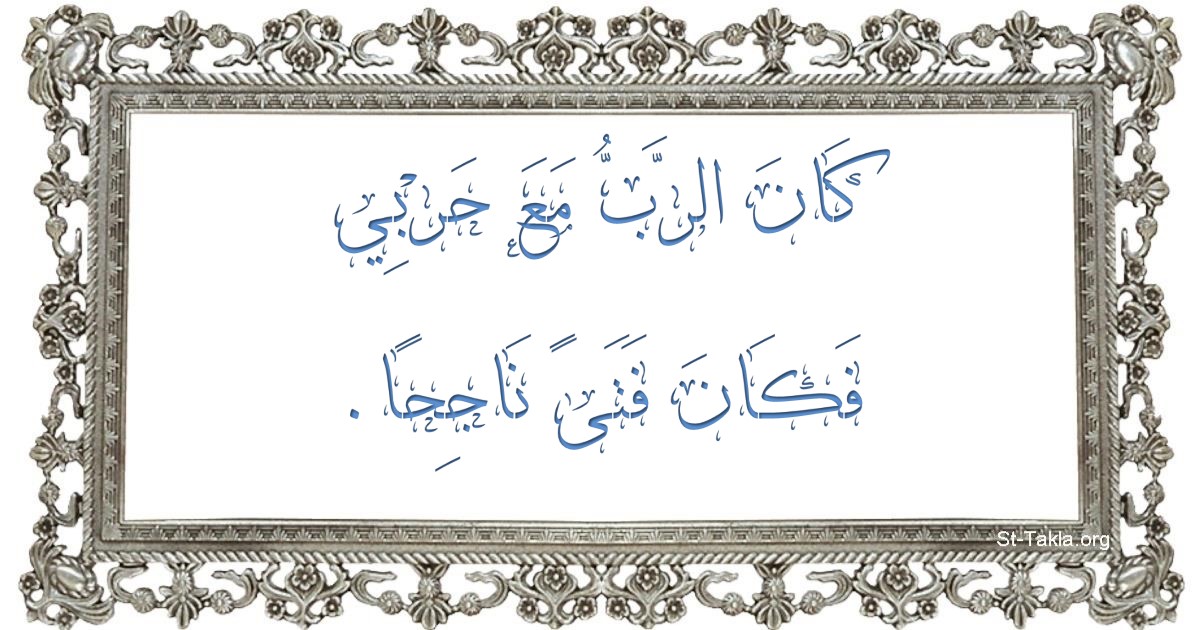 كَانَ الرَّبُّ مَعَ حَربِي
فَكَانَ فَتَىً نَاجِحًا .
St-Takla.org